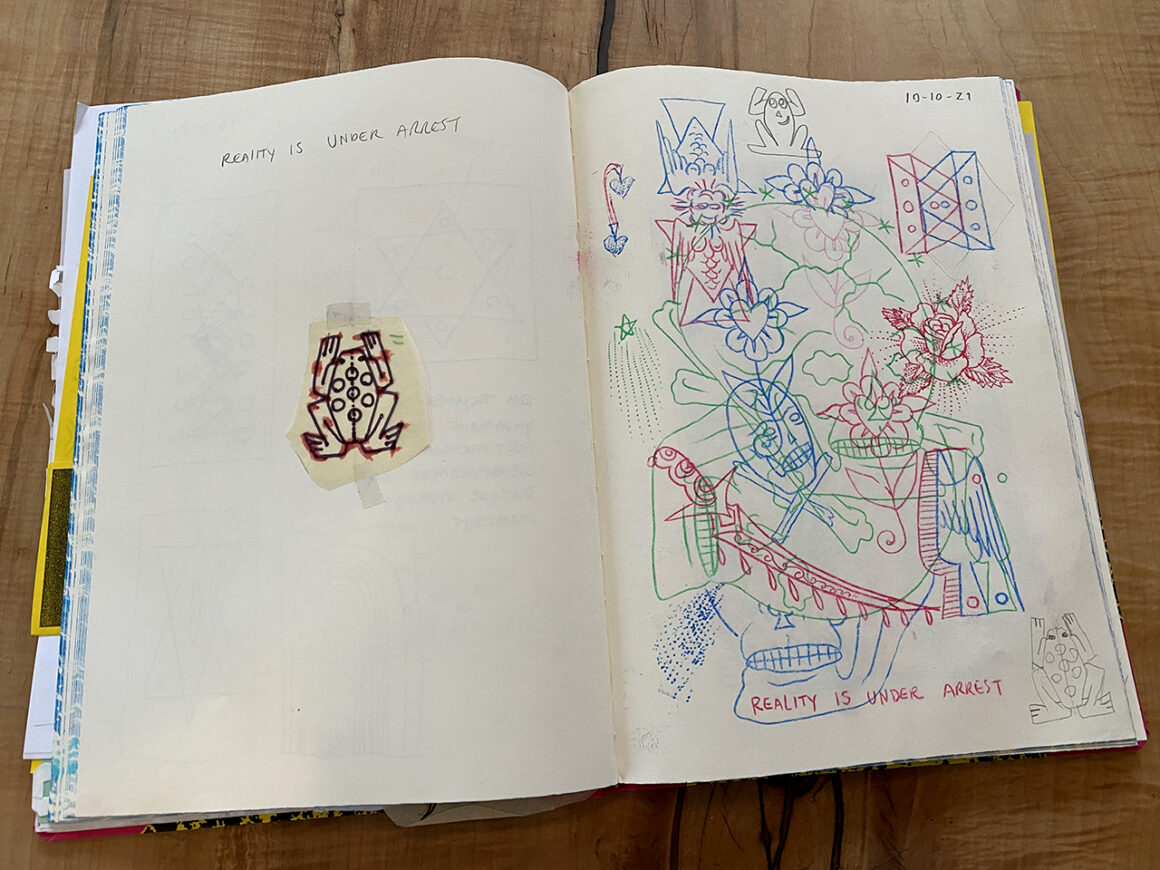 REALITY IS UNDER ARREST
10-10-21
REALITY IS UNDER ARREST